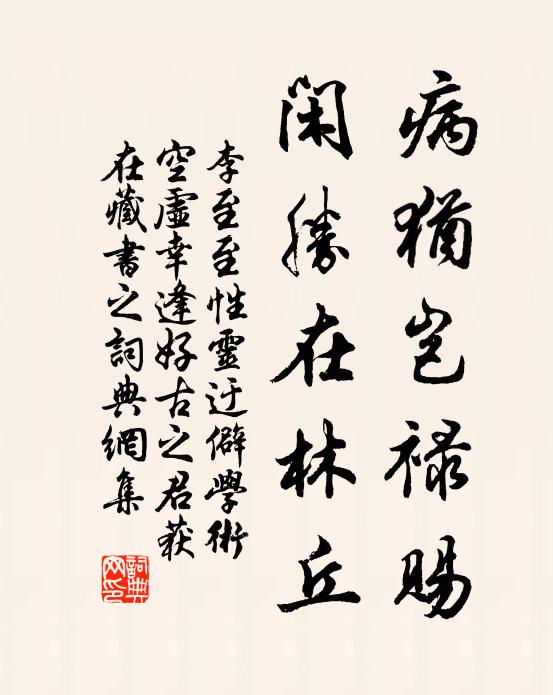 病猶豈祿賜
閑勝在林丘
李至至性靈迂僻學術
空虛幸逢好古之君获
在藏書之詞典網集
詞典
网印